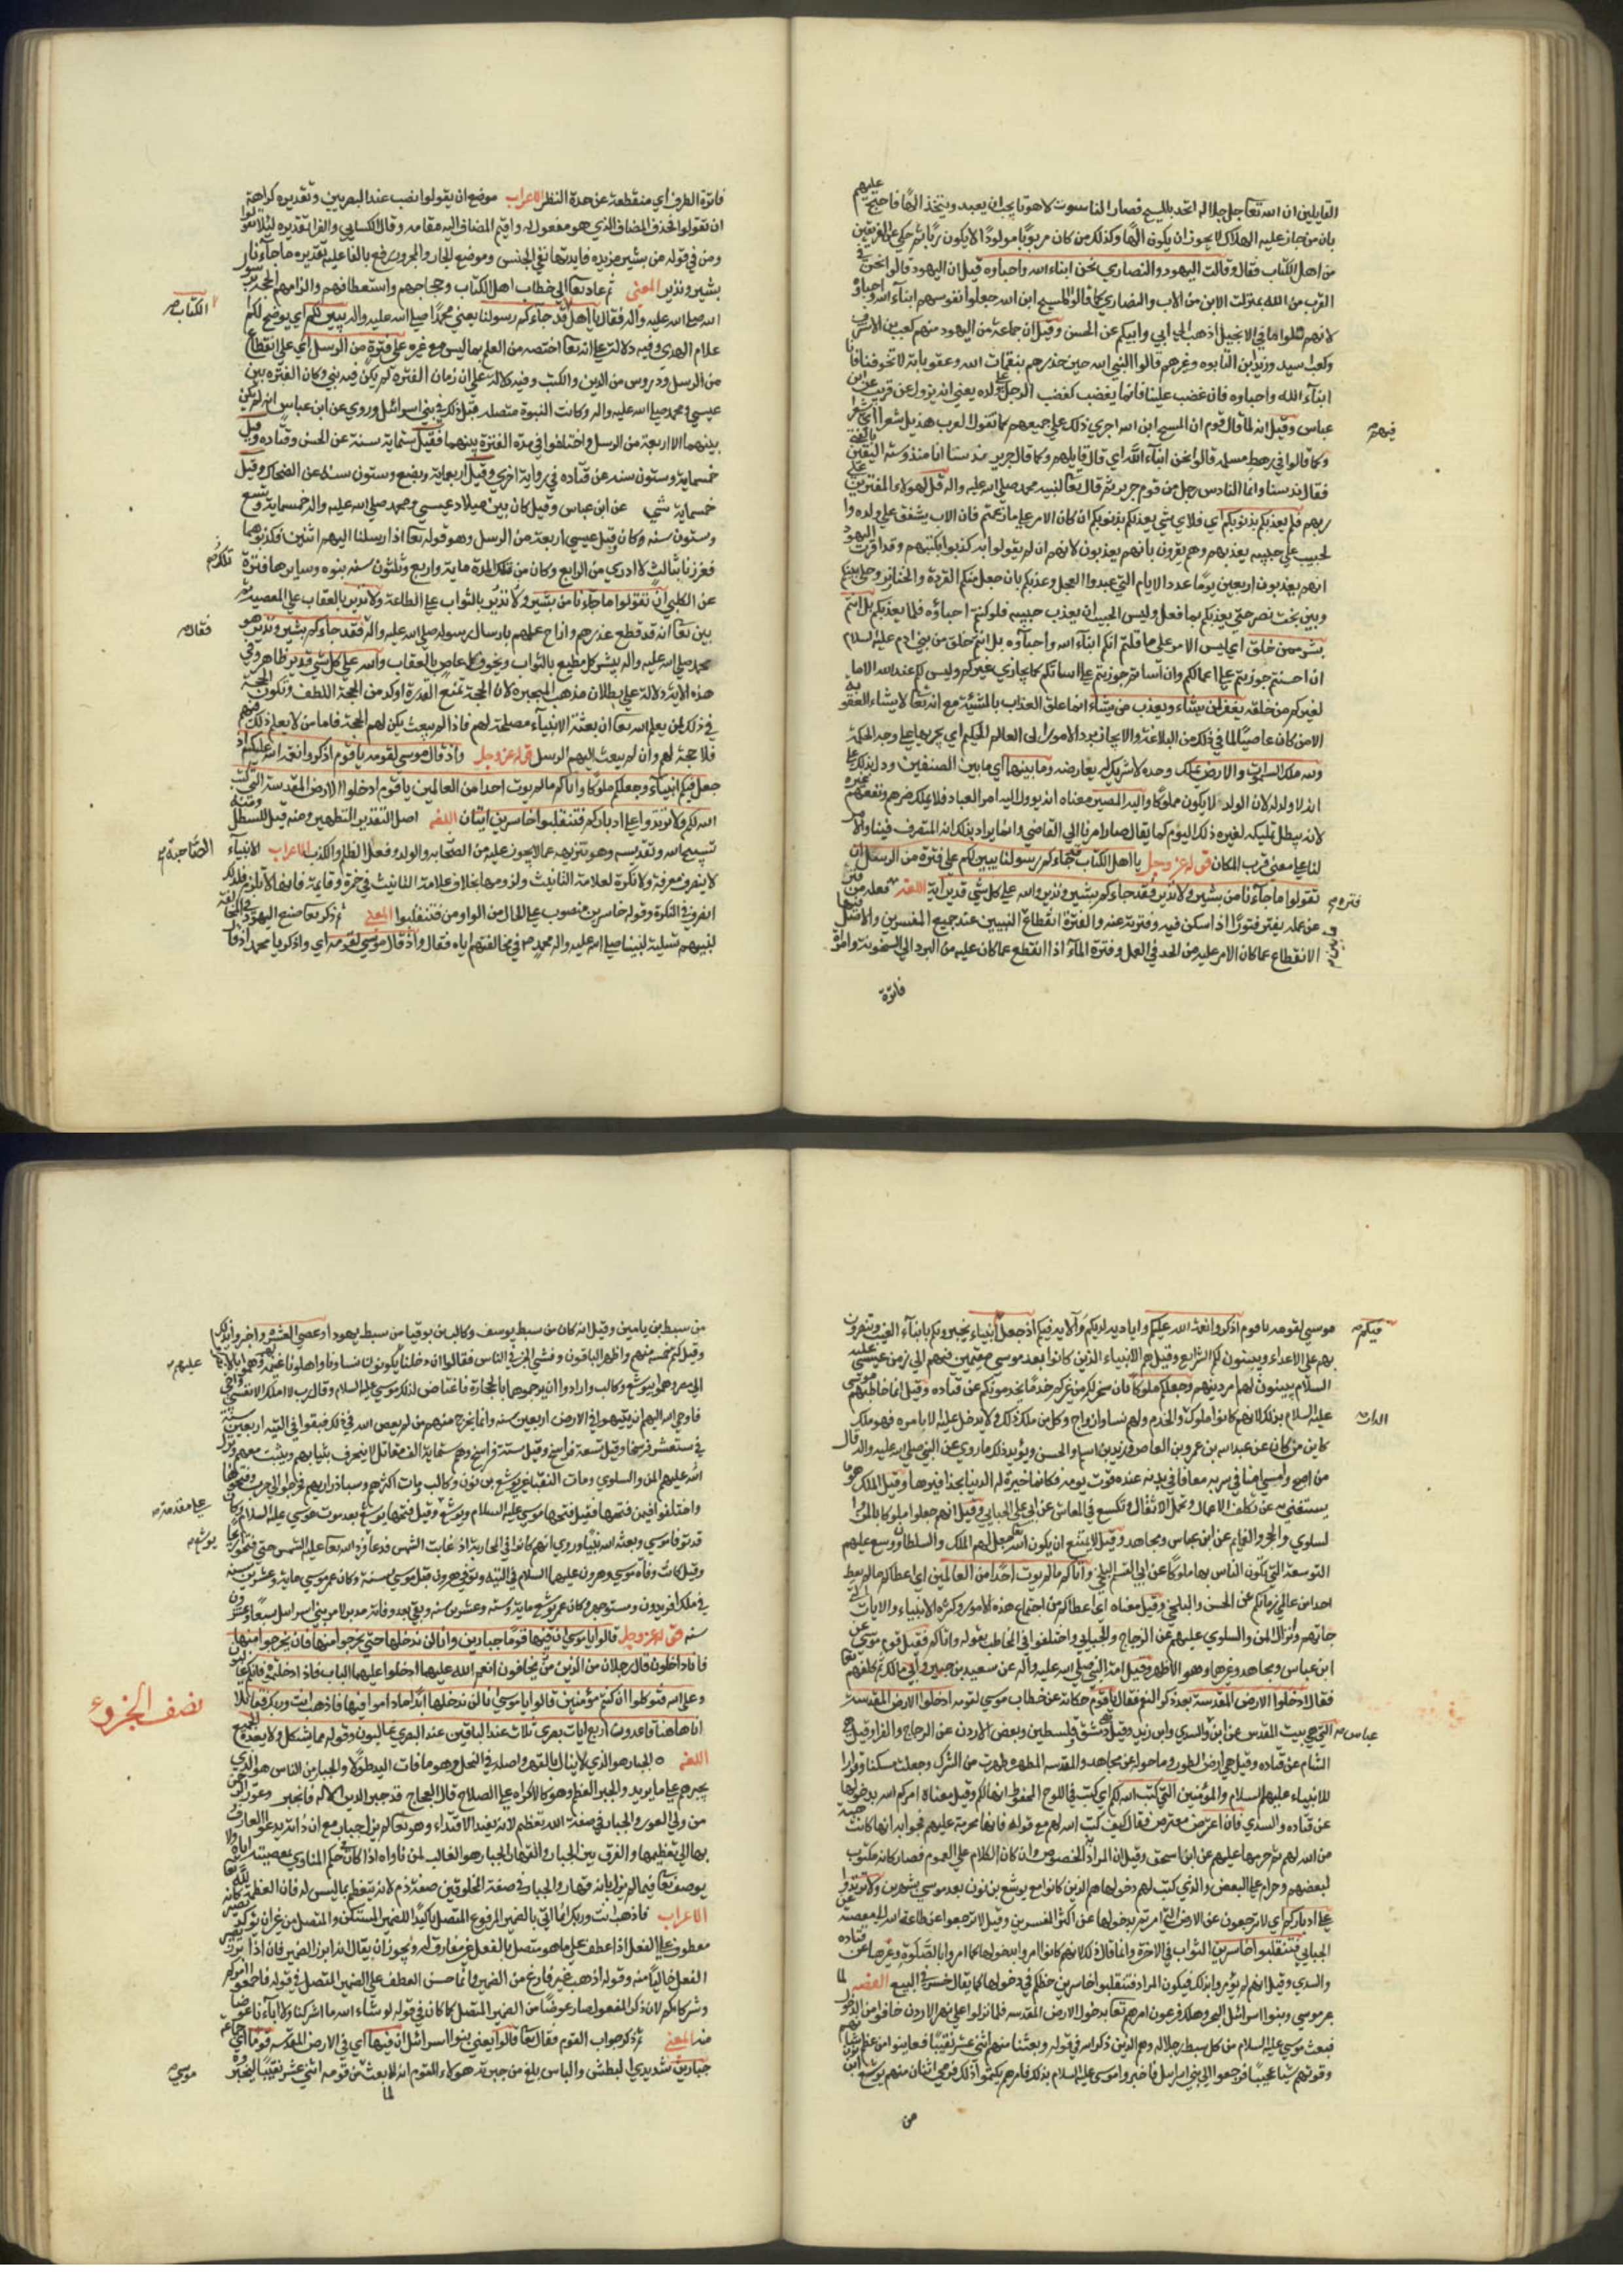 القايلين ان الله تعا جل جلاله اتحد بالمسيح فصار الناسوت لاهوتا يجب ان يعبد ويتخذ الهًا فاحتج عليهم
بان من جاز عليه الهلاك لا يجوز ان يكون الهًا وكذلك من كان مربوبًا مولودًا لا يكون ربًا ثم حكي عن الفريقين
من اهل الكتاب فقال وقالت اليهود والنصاري نحن ابناء الله واحباوه قيل ان اليهود قالوا نحن في
القرب من الله بمنزلت الابن من الاب والنصاري كما قالوا المسيح ابن الله جعلوا نفوسهم ابناء الله واحباؤ
لانهم تاولوا ما في الانجيل اذهب الي ابي وابيكم عن الحسن وقيل ان جماعة من اليهود منهم كعب بن الاشرف
وكعب بن اسيد وزيد ابن التابوه وغيرهم قالوا النبي الله حين حذرهم بنقمات الله وعقوباته لا تخوفنا فانا
ابناء الله واحباوه فان غضب علينا فانما يغضب كغضب الرجل علي ولده يعني انه يزول عن قريب عن ابن
عباس وقيل انه لما قال قوم ان المسيح ابن الله اجري ذلك علي جميعهم كما تقول العرب هذيل شعرا اي شعرا فيهم
وكما قالوا في رهط مسيلمه قالوا نحن ابناء الله اي قال قايلهم وكما قال جرير
فقال ندسنا وانما النادس رجل من قوم جرير ثم قال تعا لنبيه محمد صلي الله عليه واله قل لهولاء المفترين علي
ربهم فلم يعذبكم بذنوبكم اي فلاي شي يعذبكم بذنوبكم ان كان الامر علي ما زعمتم فان الاب يشفق علي ولده وا
لحبيب علي حبيبه يعذبهم وهم يقرون بانهم يعذبون لانهم ان لم يقولوا به كذبوا بكتبهم وقد اقرت اليهود
انهم يعذبون اربعين يومًا عدد الايام التي عبدوا العجل وعذبكم بان جعل منكم القردة والخنازير وخلي بينكم
وبين بخت نصر حتي يعذبكم بما فعل وليس الحبيب ان يعذب حبيبه فلو كنتم احباؤه فلما يعذبكم بل انتم
بشر ممن خلق اي ليس الامر علي ما قلتم انكم ابناء الله واحباؤه بل انتم خلق من بني ادم عليه السلام
ان احسنتم جوزيتم علي اعمالكم وان اساتم جوزيتم علي اساتكم كما يجازي غيركم وليس لكم عند الله الا ما
لغيركم من خلقه يغفر لمن يشاء ويعذب من يشاء انما علق العذاب بالمشيئة مع انه تعا لا يشاء العقوبة
الا من كان عاصيًا لما في ذلك من البلاغة والايجاز برد الامور الي العالم الحكيم الذي يجريها علي وجه الحكمة
ولله ملك السموات والارض يملك وحده لا شريك له يعارضه وما بينهما اي ما بين الصنفين ودل بذلك علي
انه لا ولد له لان الولد لا يكون مملوكًا واليه المصير معناه انه يوول اليه امر العباد فلا يملك ضرهم ونفعهم غيره
لانه يبطل تمليكه لغيره ذلك اليوم كما يقال صار امرنا الي القاضي وانما يراد بذلك انه المتصرف فينا والامر
لنا علي معني قرب المكان قوله عز وجل يا اهل الكتاب قد جاءكم رسولنا يبين لكم علي فترة من الرسل ان
تقولوا ما جاءنا من بشير ولا نذير فقد جاءكم بشير ونذير والله علي كل شي قدير آية اللغة فترة فعله من فتر
عن عمله يفتر فتورًا اذا سكن فيه وفترته عنه والفترة انقطاع ما بين النبيين عند جميع المفسرين والاصل فيها
الانقطاع عما كان الامر عليه من الجد في العمل وفترة الماء اذا انقطع عما كان عليه من البرد الي السخونة وامراة
فاترة
فاترة الطرف اي منقطعة عن حدة النظر الاعراب موضع ان يقولوا نصب عند البصريين وتقديره كراهة
ان تقولوا فحذف المضاف الذي هو مفعول له واقيم المضاف اليه مقامه وقال الكسايي والفرا تقديره ليلا تقولوا
ومن في قوله من بشير مزيده فايدتها نفي الجنس وموضع الجار والمجرور رفع بالفاعلية تقديره ما جاءنا
بشير ونذير المعني ثم عاد تعا الي خطاب اهل الكتاب وحجاجهم واستعطافهم والزامهم الحجة برسول
الله صلي الله عليه واله فقال يا اهل الكتاب قد جاءكم رسولنا يعني محمدًا صلي الله عليه واله يبين لكم اي يوضح لكم
علام الهدي وفيه دلالة علي انه تعا اختصه من العلم بما ليس مع غيره علي فترة من الرسل اي علي انقطاع
من الرسل ودروس من الدين والكتب وفيه دلالة علي ان زمان الفترة لم يكن فيه نبي وكان الفتره بين
عيسي ومحمد صلي الله عليه واله وكانت النبوة متصله قبل ذلك في بني اسرائل وروي عن ابن عباس انه لم يكن
بينهما الا اربعة من الرسل واختلفوا في مدة الفترة بينهما فقيل ستماية سنة عن الحسن وقتاده وقيل
خمسماية وستون سنه عن قتاده في رواية اخري وقيل اربعماية وبضع وستون سنه عن الضحاك وقيل
خمساية شي عن ابن عباس وقيل كان بين ميلاد عيسي ومحمد صلي الله عليه واله خمسماية وتسع
وستون سنه وكان قبل عيسي اربعة من الرسل وهو قوله تعا اذ ارسلنا اليهم اثنين فكذبوهما
فعززنا بثالث لا ادري من الرابع وكان من تلك المدة ماية واربع وثلثون سنه بنوه وسايرها فترة
عن الكلبي ان تقولوا ما جاءنا من بشير ولا نذير بالثواب علي الطاعة ولا نذير بالعقاب علي المعصية ثم
بين تعا انه قد قطع عذرهم وازاح علتهم بارسال رسوله صلي الله عليه واله فقال فقد جاءكم بشير ونذير هو
محمد صلي الله عليه واله يبشر كل مطيع بالثواب ويخوف كل عاص بالعقاب والله علي كل شي قدير ظاهر وفي
هذه الاية دلالة علي بطلان مذهب المجبره لان الحجة بمنع القدرة اوكد من الحجة اللطف وتكون الحجة
في ذلك لمن يعلم الله تعا ان بعثة الانبياء مصلحة لهم فاذا لم يبعث يكن لهم الحجة فاما من لا يعلم ذلك منهم
فلا حجة لهم وان لم يبعث اليهم الرسل قوله عز وجل واذ قال موسي لقومه يا قوم اذكروا نعمة الله عليكم اذ
جعل فيكم انبياء وجعلكم ملوكًا واتاكم ما لم يوت احدا من العالمين يا قوم ادخلوا الارض المقدسة التي كتب
الله لكم ولا ترتدوا علي ادباركم فتنقلبوا خاسرين ايتان اللغة اصل التقديس التطهير ومنه قيل للسطل
تسبيح الله وتقديسه وهو تنزيهه عما لا يجوز عليه من الصاحبة والولد وفعل الظلم والكذب الاعراب الانبياء
لا ينصرف معرفة ولا نكرة لعلامة التانيث ولزومها بخلاف علامة التانيث في خمرة وقايمة فانها لا تلزم فلذلك
انصرف في النكرة وقوله خاسرين منصوب علي الحال من الواو من فتنقلبوا المعني ثم ذكر تعا صنع اليهود في المخالفة
لنبيهم تسلية لنبينا صلي الله عليه واله محمد في مخالفتهم اياه فقال واذ قال موسي لقومه اي واذكر يا محمد اذ قال
موسي لقومه يا قوم اذكروا نعمة الله عليكم واياديه لديكم والاءه فيكم اذ جعل فيكم انبياء يخبرونكم بانباء الغيب وتنصرون
بهم علي الاعداء ويبينون لكم الشرايع وقيل هم الانبياء الذين كانوا بعد موسي مقيمين فيهم الي زمن عيسي عليه
السلام يبينون لهم امر دينهم وجعلكم ملوكًا بان سخر لكم من غيركم خدمًا يخدمونكم عن قتاده وقيل انما خاطبهم موسي
عليه السلام بذلك لانهم كانوا ملوك الدار والخدم ولهم نساء وازواج وكل من ملك ذلك لا يدخل عليه الا بامره فهو ملك
كاين من كان عن عبدالله بن عمرو بن العاص وزيد بن اسلم والحسن ويؤيد ذلك ما روي عن النبي صلي الله عليه واله قال
من اصبح وامسي امنا في سربه معافا في بدنه عنده قوت يومه فكانما خيرة له الدنيا بحذافيرها وقيل الملك هو ما
يستغني به عن تكلف الاعمال وتحمل الاثقال والتكسب في المعاش عن ابي علي الجبايي وقيل انهم جعلوا ملوكا بالمن وا
لسلوي والحجر والغمام عن ابن عباس ومجاهد وقيل لا يمتنع ان يكون الله تعا جعل لهم الملك والسلطان ووسع عليهم
التوسعة التي تكون الناس بها ملوكًا عن ابي القسم البلخي واتاكم ما لم يوت احدًا من العالمين اي اعطاكم ما لم يعط
احدا من عالمي زمانكم عن الحسن والبلخي وقيل معناه اي اعطاكم من اجتماع هذه الامور وكثرة الانبياء والايات التي
جاتهم وانزال المن والسلوي عليهم عن الزجاج والجبايي واختلفوا في المخاطب بقوله واتاكم فقيل قوم موسي عن
ابن عباس ومجاهد وغيرها وهو الاظهر وقيل امة النبي صلي الله عليه واله عن سعيد بن جبير وابي مالك ثم كلفهم تعا
فقال ادخلوا الارض المقدسة بعد ذكر النعم فقال يا قوم حكاية عن خطاب موسي لقومه ادخلوا الارض المقدسة
التي هي بيت المقدس عن ابن عباس والسدي وابن زيد وقيل هي دمشق وفلسطين وبعض الاردن عن الزجاج والفرا وقيل هي
الشام عن قتاده وقيل هي ارض الطور وما حوله عن مجاهد والمقدسة المطهره طهرت من الشرك وجعلت مسكنا وقرارا
للانبياء عليهم السلام والمؤمنين التي كتب الله لكم اي كتب في اللوح المحفوظ انها لكم وقيل معناه امركم الله بدخولها
عن قتاده والسدي فان اعترض معترض فقال كيف كتب الله لهم مع قوله فانها محرمة عليهم فجوابه انها كانت هبة
من الله لهم ثم حرمها عليهم عن ابن اسحق وقيل ان المراد به الخصوص وان كان الكلام علي العموم فصار كانه مكتوب
لبعضهم وحرام علي البعض والذي كتب لهم دخولها هم الذين كانوا مع يوشع بن نون بعد موسي بشهرين ولا ترتدوا
علي ادباركم اي لا ترجعون عن الارض التي امرتم بدخولها عن اكثر المفسرين وقيل لا ترجعوا عن طاعة الله الي معصيته عن
الجبايي فتنقلبوا خاسرين الثواب في الاخرة وانما قال ذلك لانهم كانوا امروا بدخولها كما امروا بالصلوة وغيرها عن قتاده
والسدي وقيل انهم لم يؤمروا بذلك فيكون المراد فتنقلبوا خاسرين حظكم في دخولها كما يقال خسر في البيع القصه لما
عبر موسي وبنوا اسرائل البحر وهلك فرعون امرهم تعا بدخول الارض المقدسه فلما نزلوا علي نهر الاردن خافوا من الدخول
فبعث موسي عليه السلام من كل سبط رجلا وهم الذين ذكر الله في قوله وبعثنا منهم اثني عشر نقيبًا فعاينوا من عظم شانهم
وقوتهم شيًا عجيبًا فرجعوا الي بني اسرايل فاخبروا موسي عليه السلام بذلك فامرهم ان يكتموا ذلك فوفي اثنان منهم يوشع بن نون
من
من سبط بن يامين وقيل انه كان من سبط يوسف وكالب بن يوقيا من سبط يهودا وعصي العشره واخبروا بذلك
وقيل كتم خمسة منهم واظهر الباقون وفشي الخبر في الناس فقالوا ان دخلنا عليهم يكونون نساونا واهلونا غنيمة
الي مصر وهموا بيوشع وكالب وارادوا ان يرجموهما بالحجارة فاغتاض لذلك موسي عليه السلام وقال رب لا املك الا نفسي واخي
فاوحي الله اليهم انهم يتيهوا في الارض اربعين سنه وانما يخرج منهم من لم يعص الله في ذلك فبقوا في التيه اربعين سنة
في ستة عشر فرسخا وقيل تسعة فراسخ وقيل ستة فراسخ وهم ستماية الف مقاتل لا ينخرق ثيابهم وينبت معهم ونزل
الله عليهم المن والسلوي ومات النقباء غير يوشع بن نون وكالب ومات اكثرهم ونشا ذراريهم فخرجوا الي حرب اريحا وفتحوها
واختلفوا فيمن فتحها فقيل فتحها موسي عليه السلام ويوشع علي مقدمته وقيل فتحها يوشع بعد موت موسي عليه السلام وكان
قد توفا موسي وبعثه الله نبيًا وروي انهم كانوا في المحاربة اذ غابت الشمس فدعا يوشع فرد الله تعا عليه الشمس حتي فتحوا اريحا
وقيل كانت وفاة موسي وهرون عليهما السلام في التيه وتوفي هرون قبل موسي بسنة وكان عمر موسي ماية وعشرين سنه
في ملك افريدون ومنوجهر وكان عمر يوشع ماية وستة وعشرين سنه وبقي بعد وفاته مدبرًا لامر بني اسرايل سبعًا وعشرون
سنه قوله عز وجل قالوا يا موسي ان فيها قومًا جبارين وانا لن ندخلها حتي يخرجوا منها فان يخرجوا منها
فانا داخلون قال رجلان من الذين يخافون انعم الله عليهما ادخلوا عليهما الباب فاذا دخلتموه فانكم غالبون
وعلي الله فتوكلوا ان كنتم مؤمنين قالوا يا موسي انا لن ندخلها ابدًا ما داموا فيها فاذهب انت وربك فقاتلا
انا هاهنا قاعدون اربع ايات بصري ثلاث عند الباقين عند البصري غالبون وقوله مما يشكل ولا يعد مع الجميع
اللغة الجبار هو الذي لا ينال بالقهر واصله في النخل وهو ما فات اليد طولًا والجبار من الناس هو الذي
يجبرهم علي ما يريد والجبر العظم وهو كالاكراه علي الصلاح قال العجاج قد جبر الدين الاله فانجبر وعوّر الرحمن
من ولي العور والجبار في صفة الله تعظيم لانه يفيد الاقتداء وهو تعا لم يزل جبار مع ان ذاته يدعو العارف
بها الي تعظيمها والفرق بين الجبار والقهار ان الجبار هو الغالب لمن ناواه اذا كان في حكم المناوي بمعصيته اياه ولا
يوصف تعا فيما لم يزل بانه قهار والجبار في صفة المخلوقين صفة ذم لانه يتعظم بما ليس له فان العظمة لله تعا
الاعراب فاذهب انت وربك انما اتي بالضمير المرفوع المنفصل تاكيدًا للضمير المستكن والمتصل من غير ان يكون كانه
معطوف علي الفعل اذا عطف علي ما هو متصل بالفعل غير مفارق له ويجوز ان يقال انه ابرز الضمير فان اذا
الفعل خاليًا منه وقوله اذهب غير فارغ من الضمير وانما حسن العطف علي الضمير المتصل في قوله فاجمعوا امركم
وشركاءكم لان ذكر المفعول صار عوضًا من الضمير المنفصل كما كان في قوله لو شاء الله ما اشركنا ولا اباءنا عوضا
منه المعني ثم ذكر جواب القوم فقال تعا قالوا يعني بنوا اسرائل ان فيها اي في الارض المقدسه قومًا اي جماعة
جبارين شديدي البطش والباس بلغ من جبريته هؤلاء القوم انه لما بعث موسي من قومه اثني عشر نقيبا ليخبروه
لما
نصف الجزوء